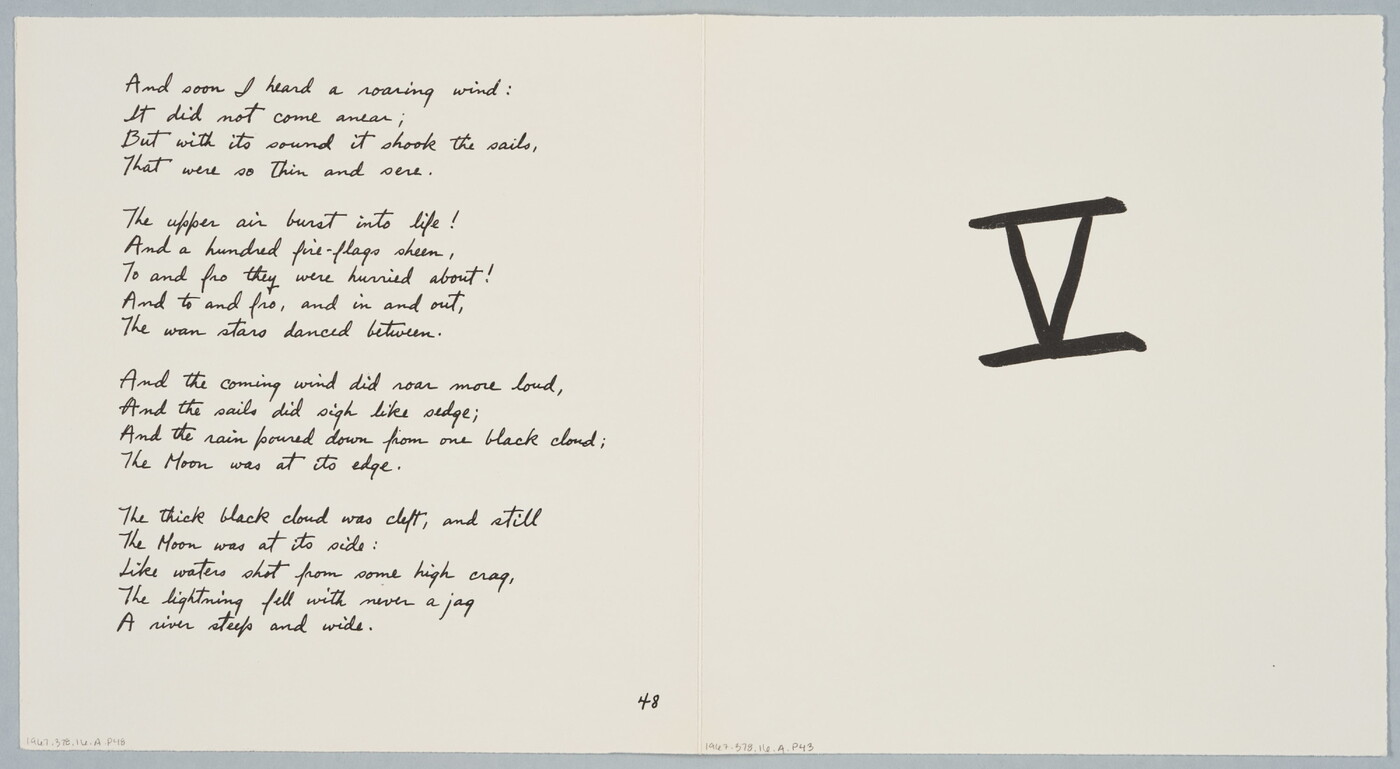 And soon I heard a roaring wind:
It did not come anear;
But with its sound it shook the sails,
That were so thin and sere.
The upper air burst into life!
And a hundred fire-flags sheen,
To and fro they were hurried about!
And to and fro, and in and out,
The wan stars danced between.
And the coming wind did roar more loud,
And the sails did sigh like sedge;
And the rain poured down from one black cloud;
The Moon was at its edge.
The thick black cloud was cleft, and still
The Moon was at its side:
Like waters shot from some high crag,
The lightning fell with never a jag
A river steep and wide.
48
1967.378.16.A.P48
V
1967.378.16.A.P43